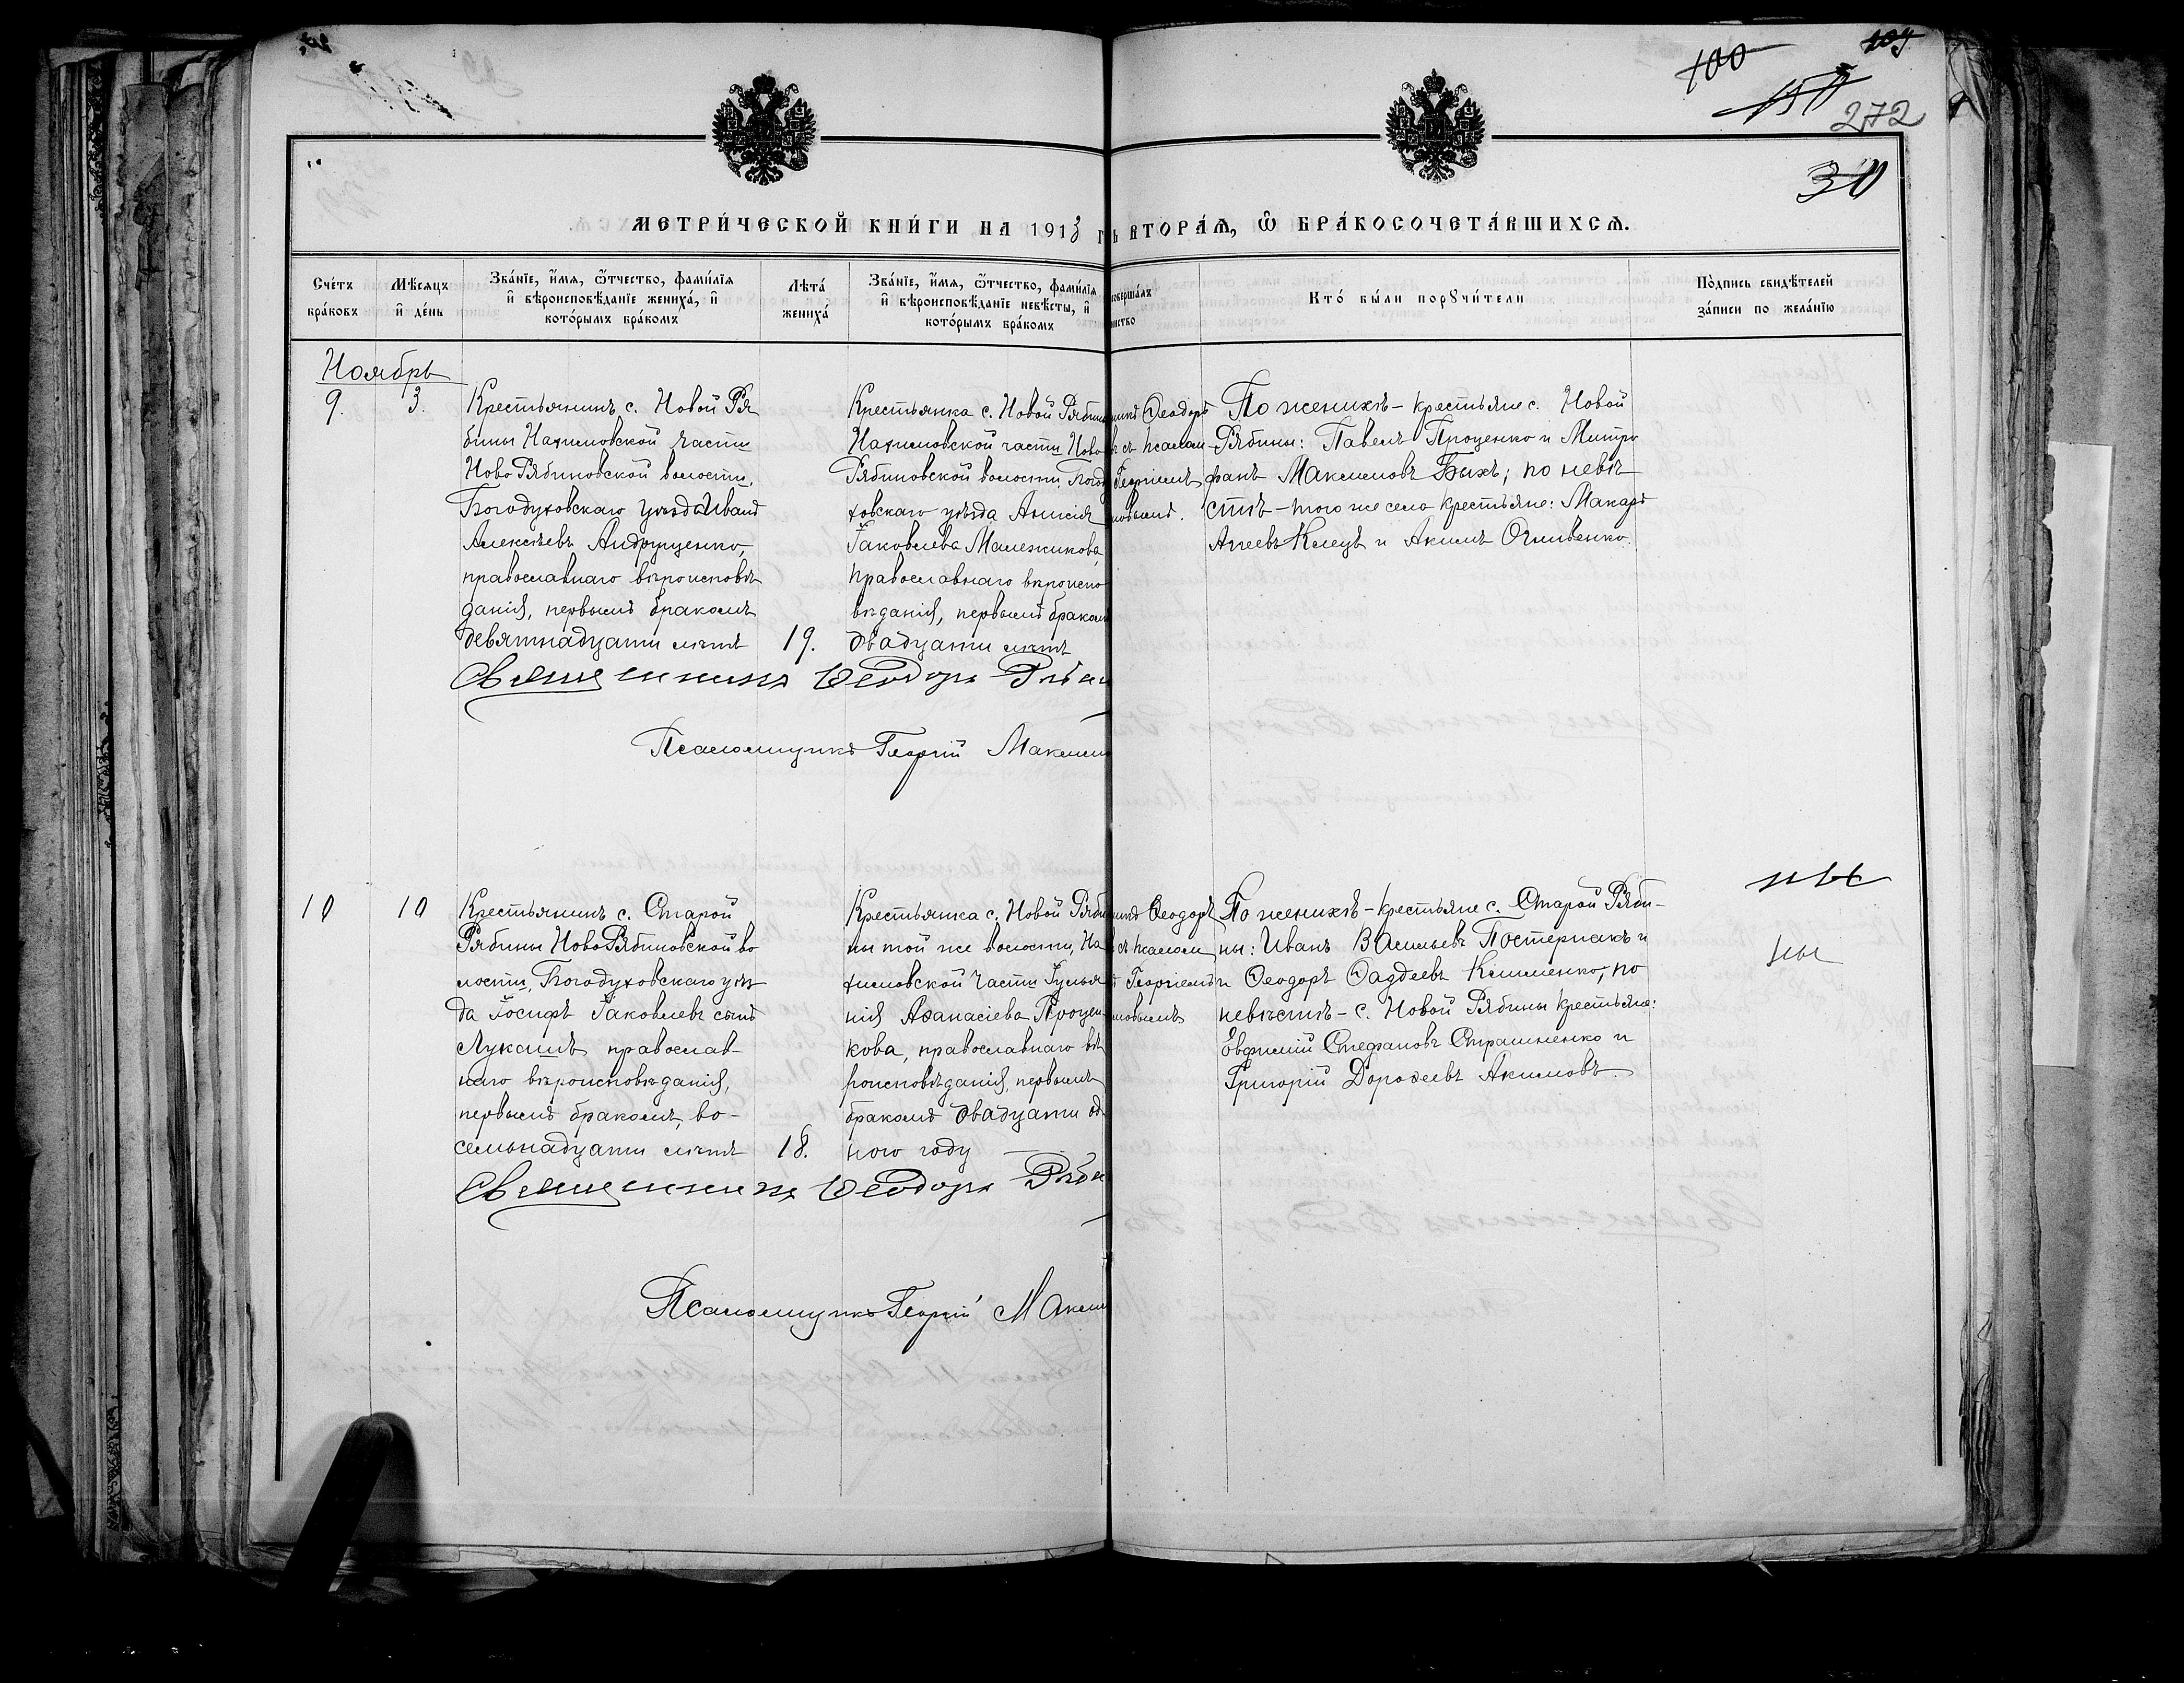 100
109
150
272
30
МЕТРИ́ЧЕСКОЙ КНИ́ГИ НА 1913
ВТОРА́Ѧ, Ѿ БРА́КОСОЧЕТА́ВШИХСѦ.
Сче́тъ бра́ковъ
Мѣ́сяцъ и҆ де́нь
Зва́нїе, и҆́мѧ, ѻ҆́тчество, фами́лїя и҆ вѣроисповѣ́данїе жениха́, и҆ кото́рымъ бра́комъ
Лѣта́ жениха́
Зва́нїе, и҆́мѧ, ѻ҆́тчество, фами́лїя и҆ вѣроисповѣ́данїе невѣ́сты, и҆ кото́рымъ бра́комъ
Кто́ бы́ли порꙋчи́тели
По́дпись свидѣ́телей за́писи по жела́нїю
Ноябрь
9. 3.
Крестьянинъ с. Новой Ря
бины Нахимовской части
Ново Рябиновской волости,
Богодуховскаго уѣзда Иванъ
Алексѣевъ Андрущенко,
православнаго вѣроисповѣ
данія, первымъ бракомъ
девятнадцати лѣтъ
19.
Крестьянка с. Новой Рябин
Нахимовской части Ново
Рябиновской волости, Богоду
ховскаго уѣзда Анисія
Іаковлева Малежикова,
православнаго вѣроиспо
вѣданія, первымъ бракомъ
двадцати лѣтъ
Ѳеодоръ
съ псалом
Георгіемъ
По женихѣ - крестьяне с. Новой
Рябины: Павелъ Проценко и Митро
фанъ Максимовъ Быхъ; по невѣ
стѣ - того же села крестьяне: Макаръ
Агеевъ Клецъ и Акимъ Огнивенко.
Священникъ Ѳеодоръ
Псаломщикъ Георгій Максим
10 10
Крестьянинъ с. Старой
Рябины Ново Рябиновской во
лости, Богодуховскаго уѣз
да Іосифъ Іаковлевъ сынъ
Лукашъ православ-
наго вѣроисповѣданія,
первымъ бракомъ, во-
семьнадцати лѣтъ
18.
Крестьянка с. Новой Ряби
ны той же волости, На
химовской части Іуліа
нія Аѳанасіева Процен
кова, православнаго вѣ
роисповѣданія, первымъ
бракомъ двадцати од
ного году
Ѳеодоръ
съ псалом
Георгіемъ
По женихѣ - крестьяне с. Старой Ряби-
ны: Иванъ Васильевъ Постернакъ и
Ѳеодоръ Ѳаддеевъ Клименко; по
невѣстѣ - с. Новой Рябины крестьяне:
Евфимій Стефановъ Страшненко и
Григорій Дороѳеевъ Акимовъ.
Священникъ Ѳеодоръ
Псаломщикъ Георгій Максим